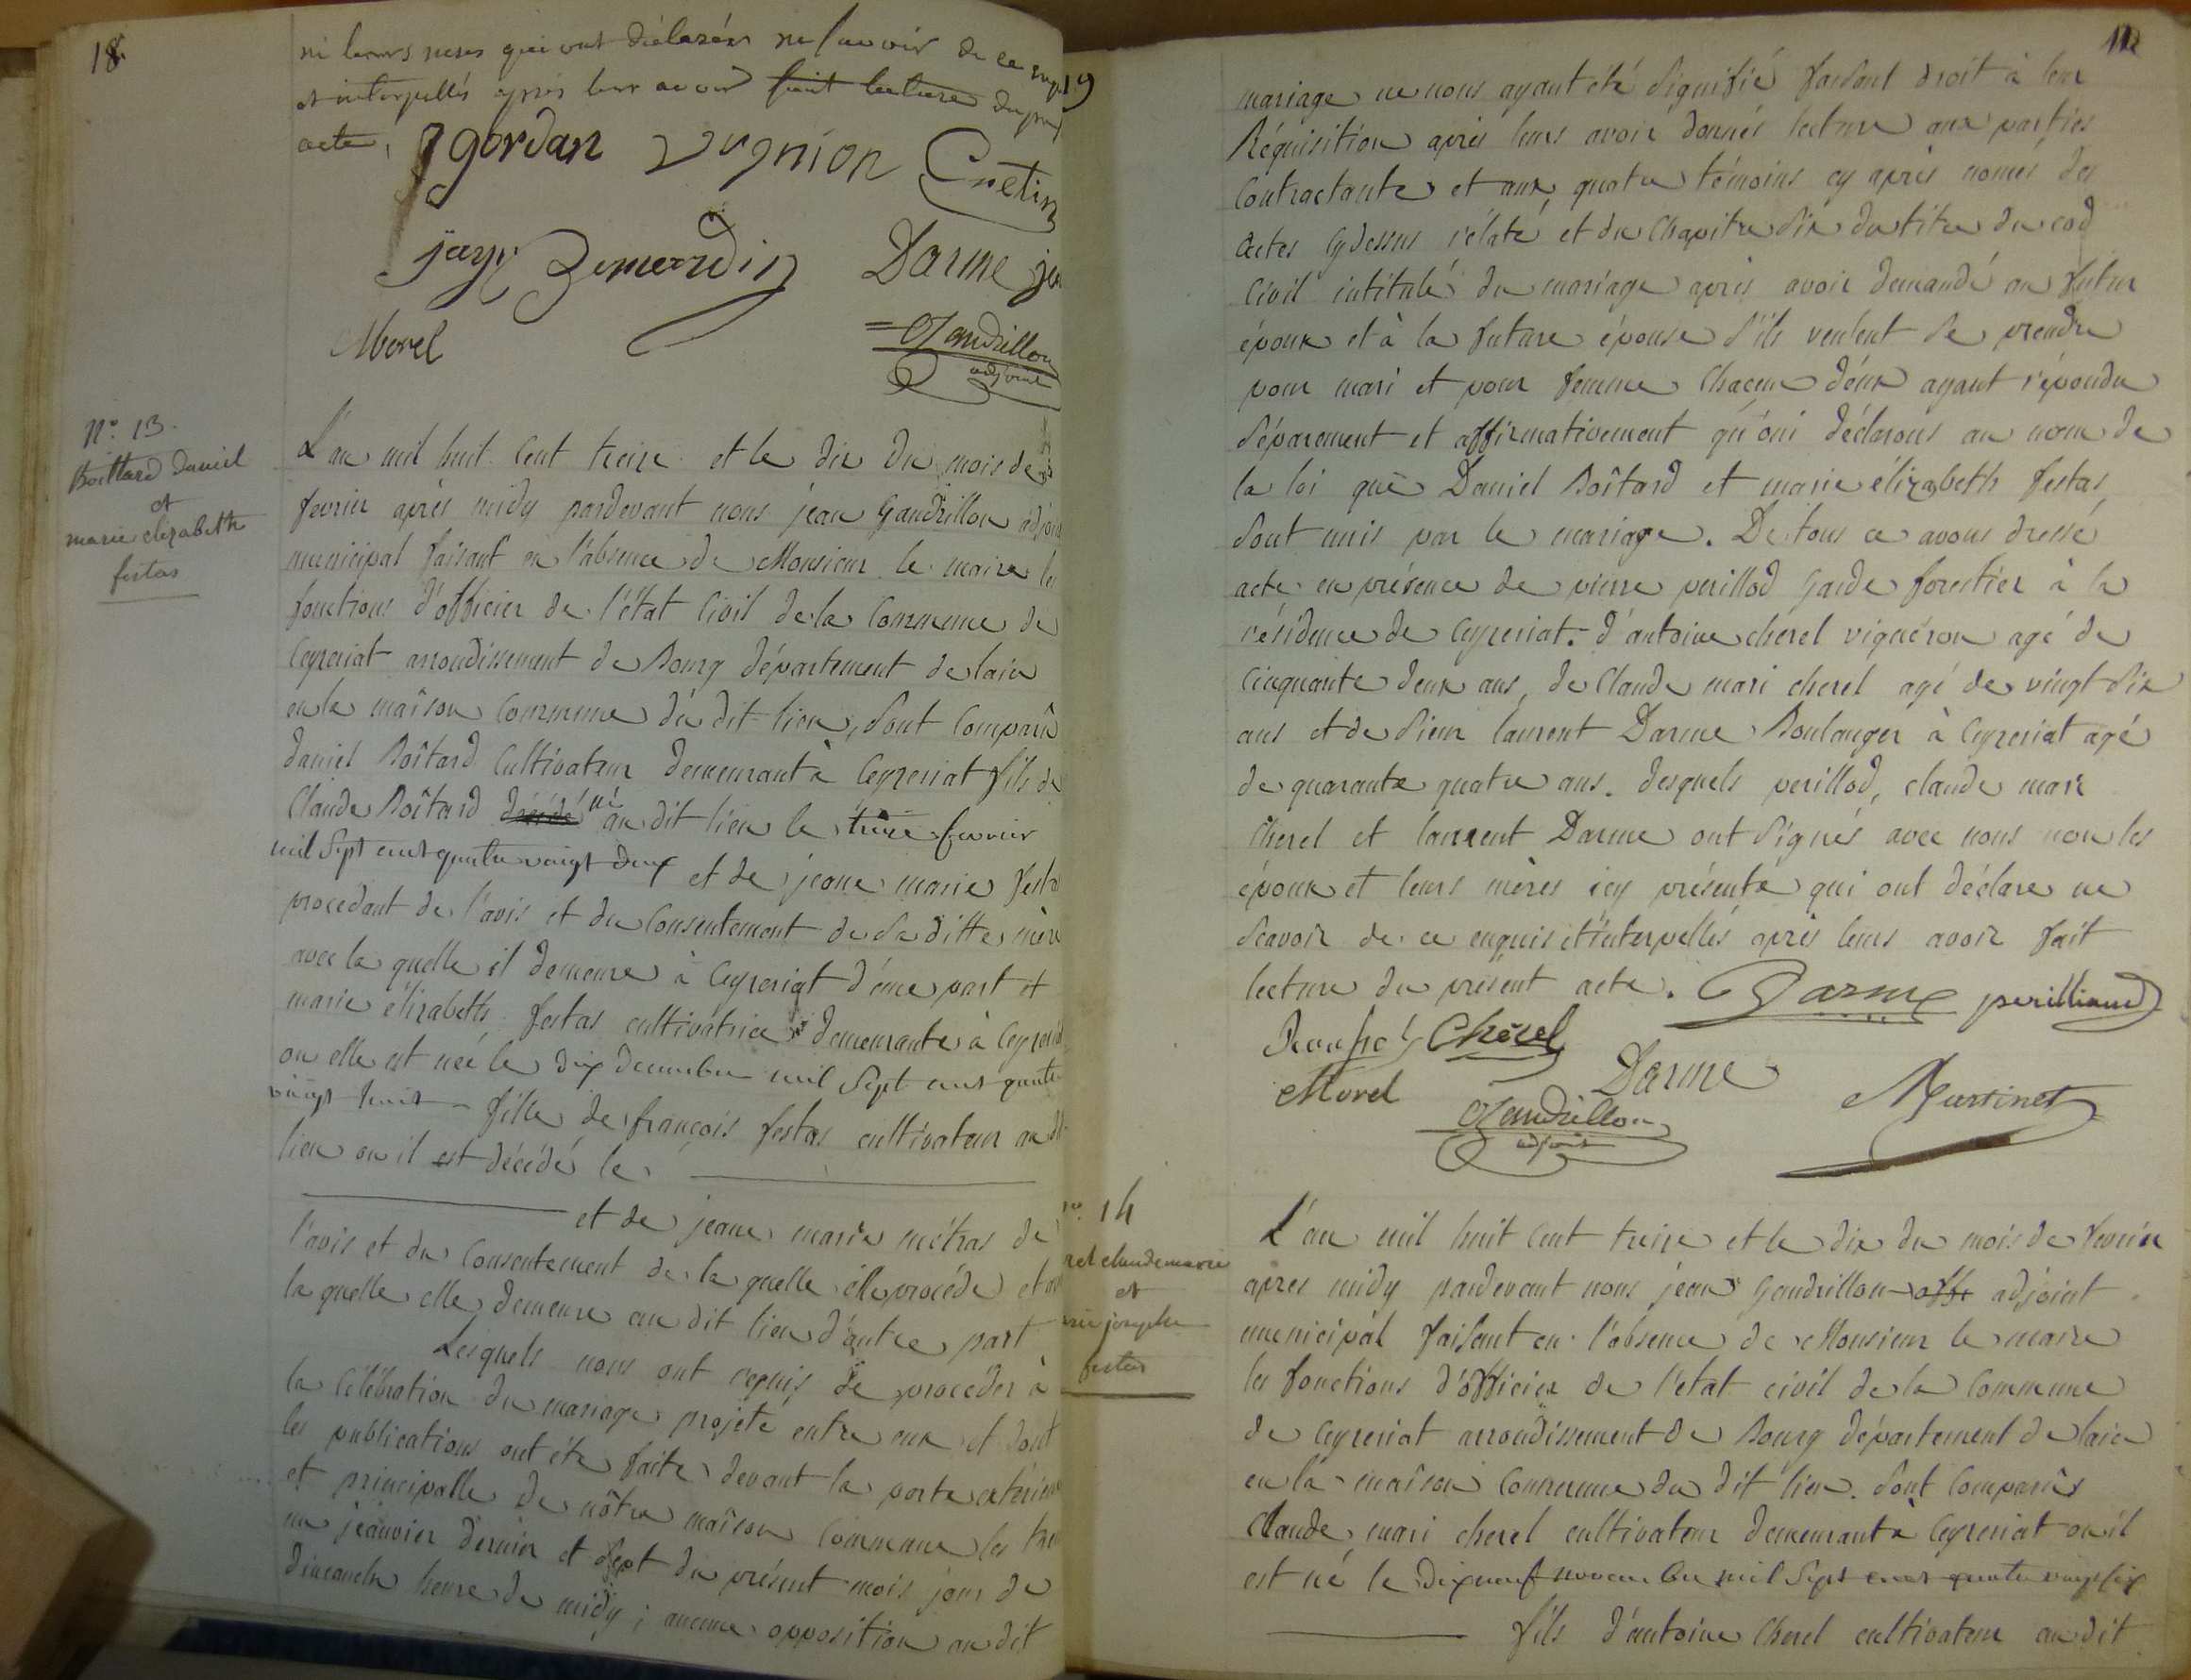 18
ni leurs meres qui ont déclarés ne scavoir de ce enq
et interpellés après leur avoir fait lecture du prés
acte,
J gordan vugnion Cretin
jayr Zemerdin Darme je
Morel Gandrillon
adjoint
N.o 13.
Boittard Daniel
et
marie elizabeth
festas
L'an mil huit Cent treize et le dix du mois de
fevrier après midy pardevant nous jean Gandrillon adjoint
municipal faisant en l'absence de Monsieur le maire les
fonctions d'officier de l'état Civil de la Commune de
Ceyzeriat arrondissement de Bourg département de lain
en la maîson Commune du dit lieu, sont Comparû
Daniel Boîtard Cultivateur demeurant à Ceyzeriat fils de
Claude Boîtard décédé né au dit lieu le treize fevrier
mil Sept cent quatre vingt deux et de jeane marie festa
procedant de l'avis et du Consentement de sa ditte mère
avec la quelle il demeure à Ceyzeriat d'une part et
marie élizabeth festas cultivatrice demeurante à Ceyzeriat
ou elle est née le dix decembre mil Sept cent quatre
vingt huit fille de françois festas cultivateur au dit
lieu ou il est décédé le
et de jeane marie métras de
l'avis et du Consentement de la quelle elle procéde et av
la quelle elle demeure au dit lieu d'autre part
Lesquels nous ont requis de procéder à
la Célébration du mariage projeté entre eux et dont
les publications ont été faite devant la porte exterieure
et principalle de nôtre maîson Commune les tren
un jeanvier dernier et sept du présent mois jour de
dimanche heure de midy ; aucune opposition au dit
19
mariage ne nous ayant été signifié faisant droit à leur
Réquisition après leurs avoir donnés lecture aux parties
Contractante et aux quatre témoins cy après només des
actes cydessus rélaté et du Chapitre six du titre du cod
Civil intitulé du mariage après avoir demandé au futur
époux et à la future épouse s'ils veulent se prendre
pour mari et pour femme Chacun d'eux ayant répondu
séparement et affirmativement qu'oui déclarons au nom de
la loi que Daniel Boîtard et marie élizabeth festas
sont unis par le mariage. De tous ce avons dressé
acte en présence de pierre perillod garde forestier à la
résidence de Ceyzeriat. d'antoine cherel vigneron agé de
Cinquante deux ans, de Claude mari cherel agé de vingt six
ans et de sieur laurent Darme Boulanger à Ceyzeriat agé
de quarante quatre ans. desquels perillod, claude mari
Cherel et laurent Darme ont signés avec nous non les
époux et leurs mères icy présente qui ont déclare ne
scavoir de ce enquis et interpellés après leurs avoir fait
lecture du présent acte. Darme perilliaud
Cherel
Morel Darme Martinet
Gandrillon
adjoint
no. 14
rel claude marie
et
rie josephe
festas
L'an mil huit Cent treize et le dix du mois de fevrier
apres midy pardevant nous jean Gandrillon offi adjoint
municipal faisant en l'absence de Monsieur le maire
les fonctions d'officier de l'état civil de la Commune
de Ceyzeriat arrondissement de Bourg département de lain
en la maîson Commune du dit lieu. sont Comparûs
Claude mari cherel cultivateur demeurant à Ceyzeriat ou il
est né le dix neuf novembre mil Sept cent quatre vingt six
fils d'antoine Cherel cultivateur au dit